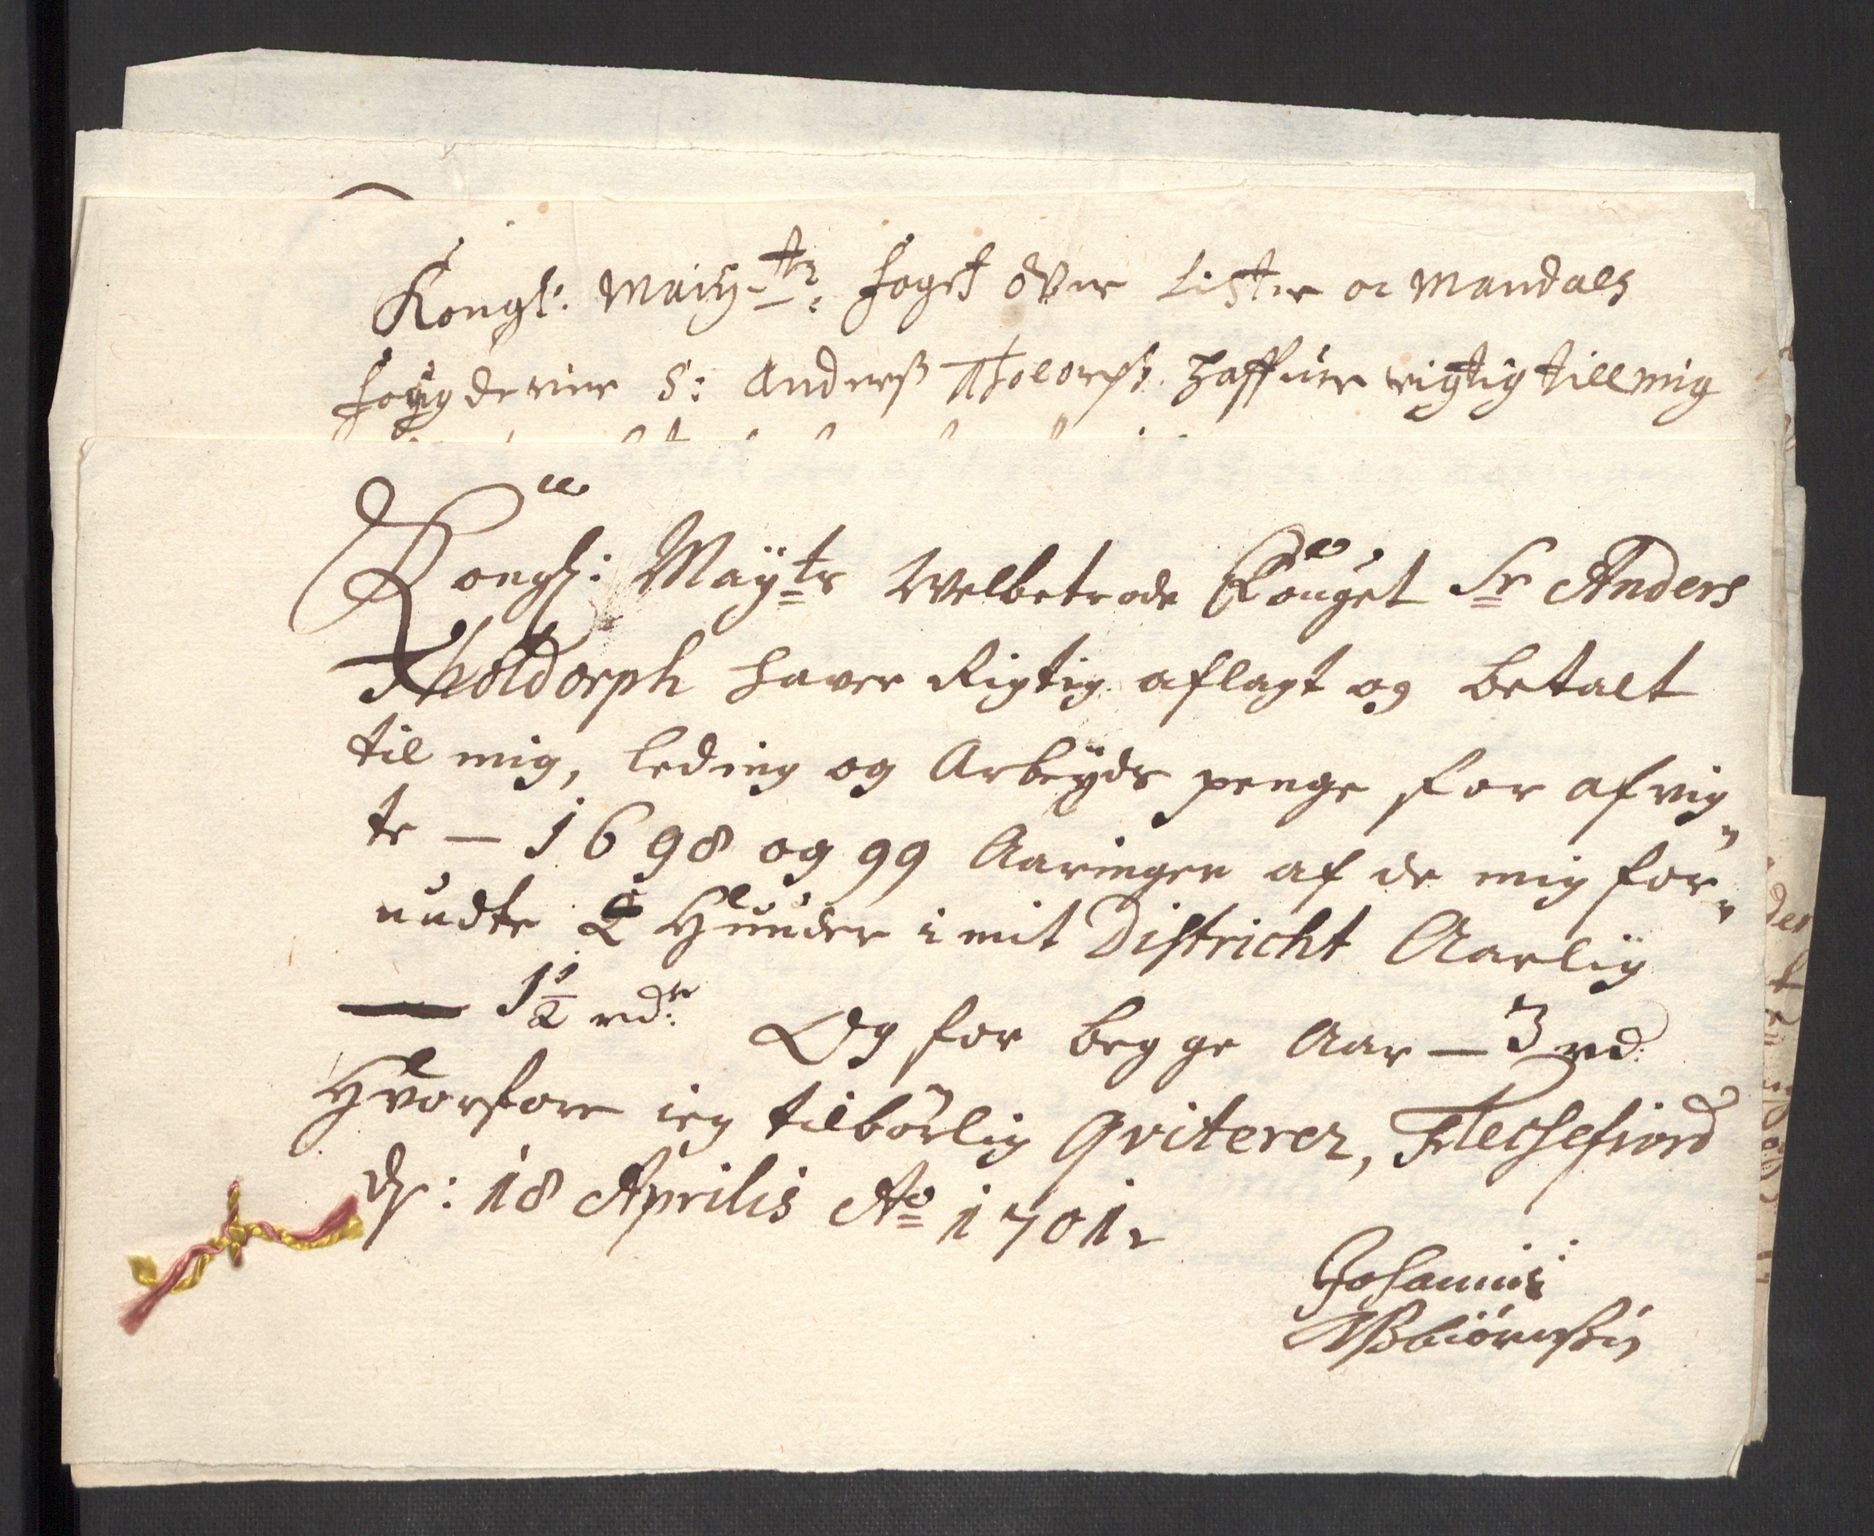 Kongl: Maiy-tz foget over Lister oc Mandals
fougderier S: Anderß Tholorph haffuer rigtig till mig
Kongl: Maÿts Welbetrode Fouget Sr Anders
Tholdorph haver Rigtig aflagt og betalt
til mig, leding og Arbeÿds penge for afvig„
te – 1698 og 99 Aaringer af de mig for„
undte 2 Hunder i mit Districht Aarlig
1½ rdr. Og for begge Aar – 3 rd:
Hvorfore ieg tilbörlig Qviterer, Flechefiord
ds: 18 Aprilis Ao 1701.
Johannis
Asbiörnßen